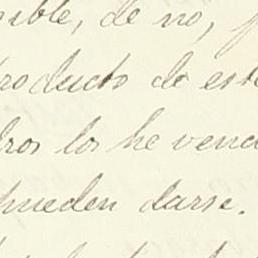 nible, de no, p
roducto de este
dros los he venc
pueden darse.